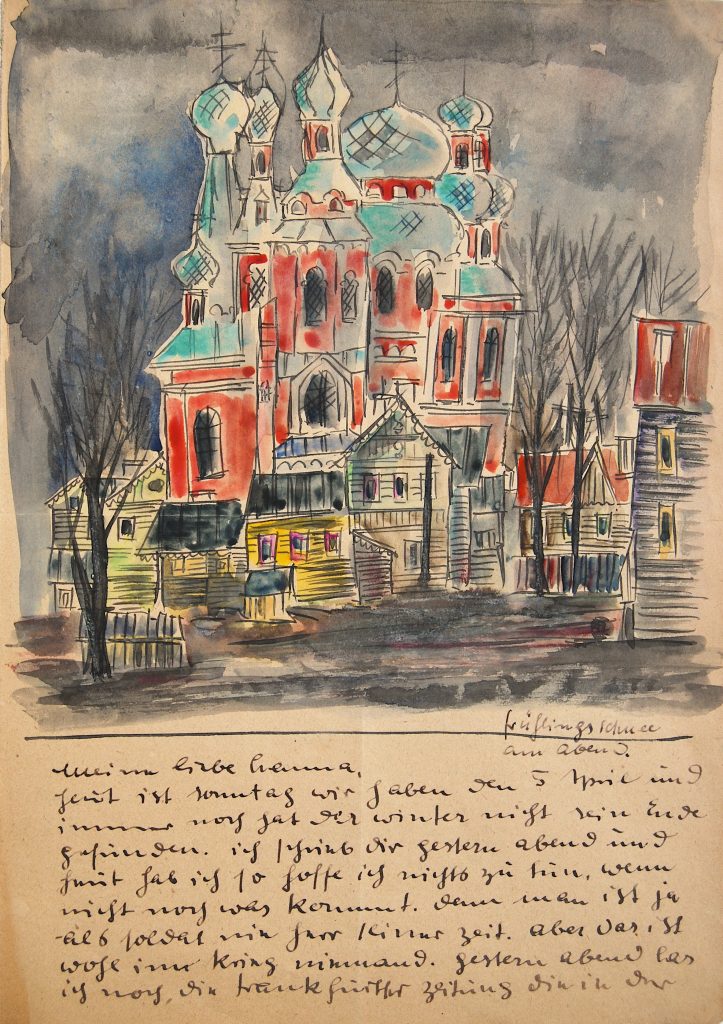 frühlingsschnee
am abend.
Meine liebe hanna,
heut ist sonntag wir haben den 5 April und
immer noch hat der winter nicht sein Ende
gefunden. ich schrieb dir gestern abend und
heut hab ich so hoffe ich nichts zu tun, wenn
nicht noch was kommt. denn man ist ja
als soldat nie herr seiner zeit. aber das ist
wohl im krieg niemand. gestern abend las
ich noch, die frankfurter zeitung die in der